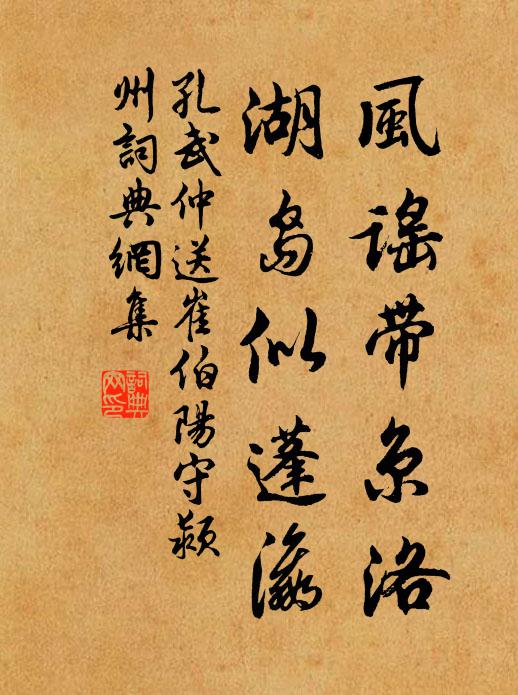 風謠帶京洛
湖島似蓬瀛
孔武仲送崔伯陽守潁
州詞典網集
詞典網印